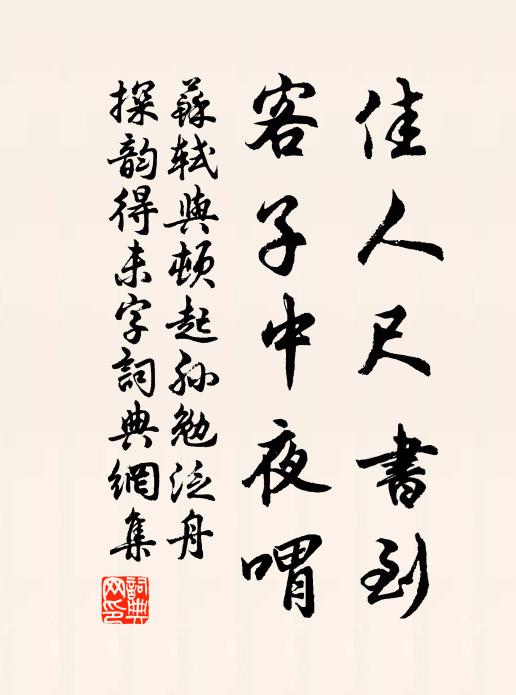 佳人尺書到
客子中夜喟
蘇軾與頓起孫勉泛舟
探韵得未字詞典網集
詞典網印